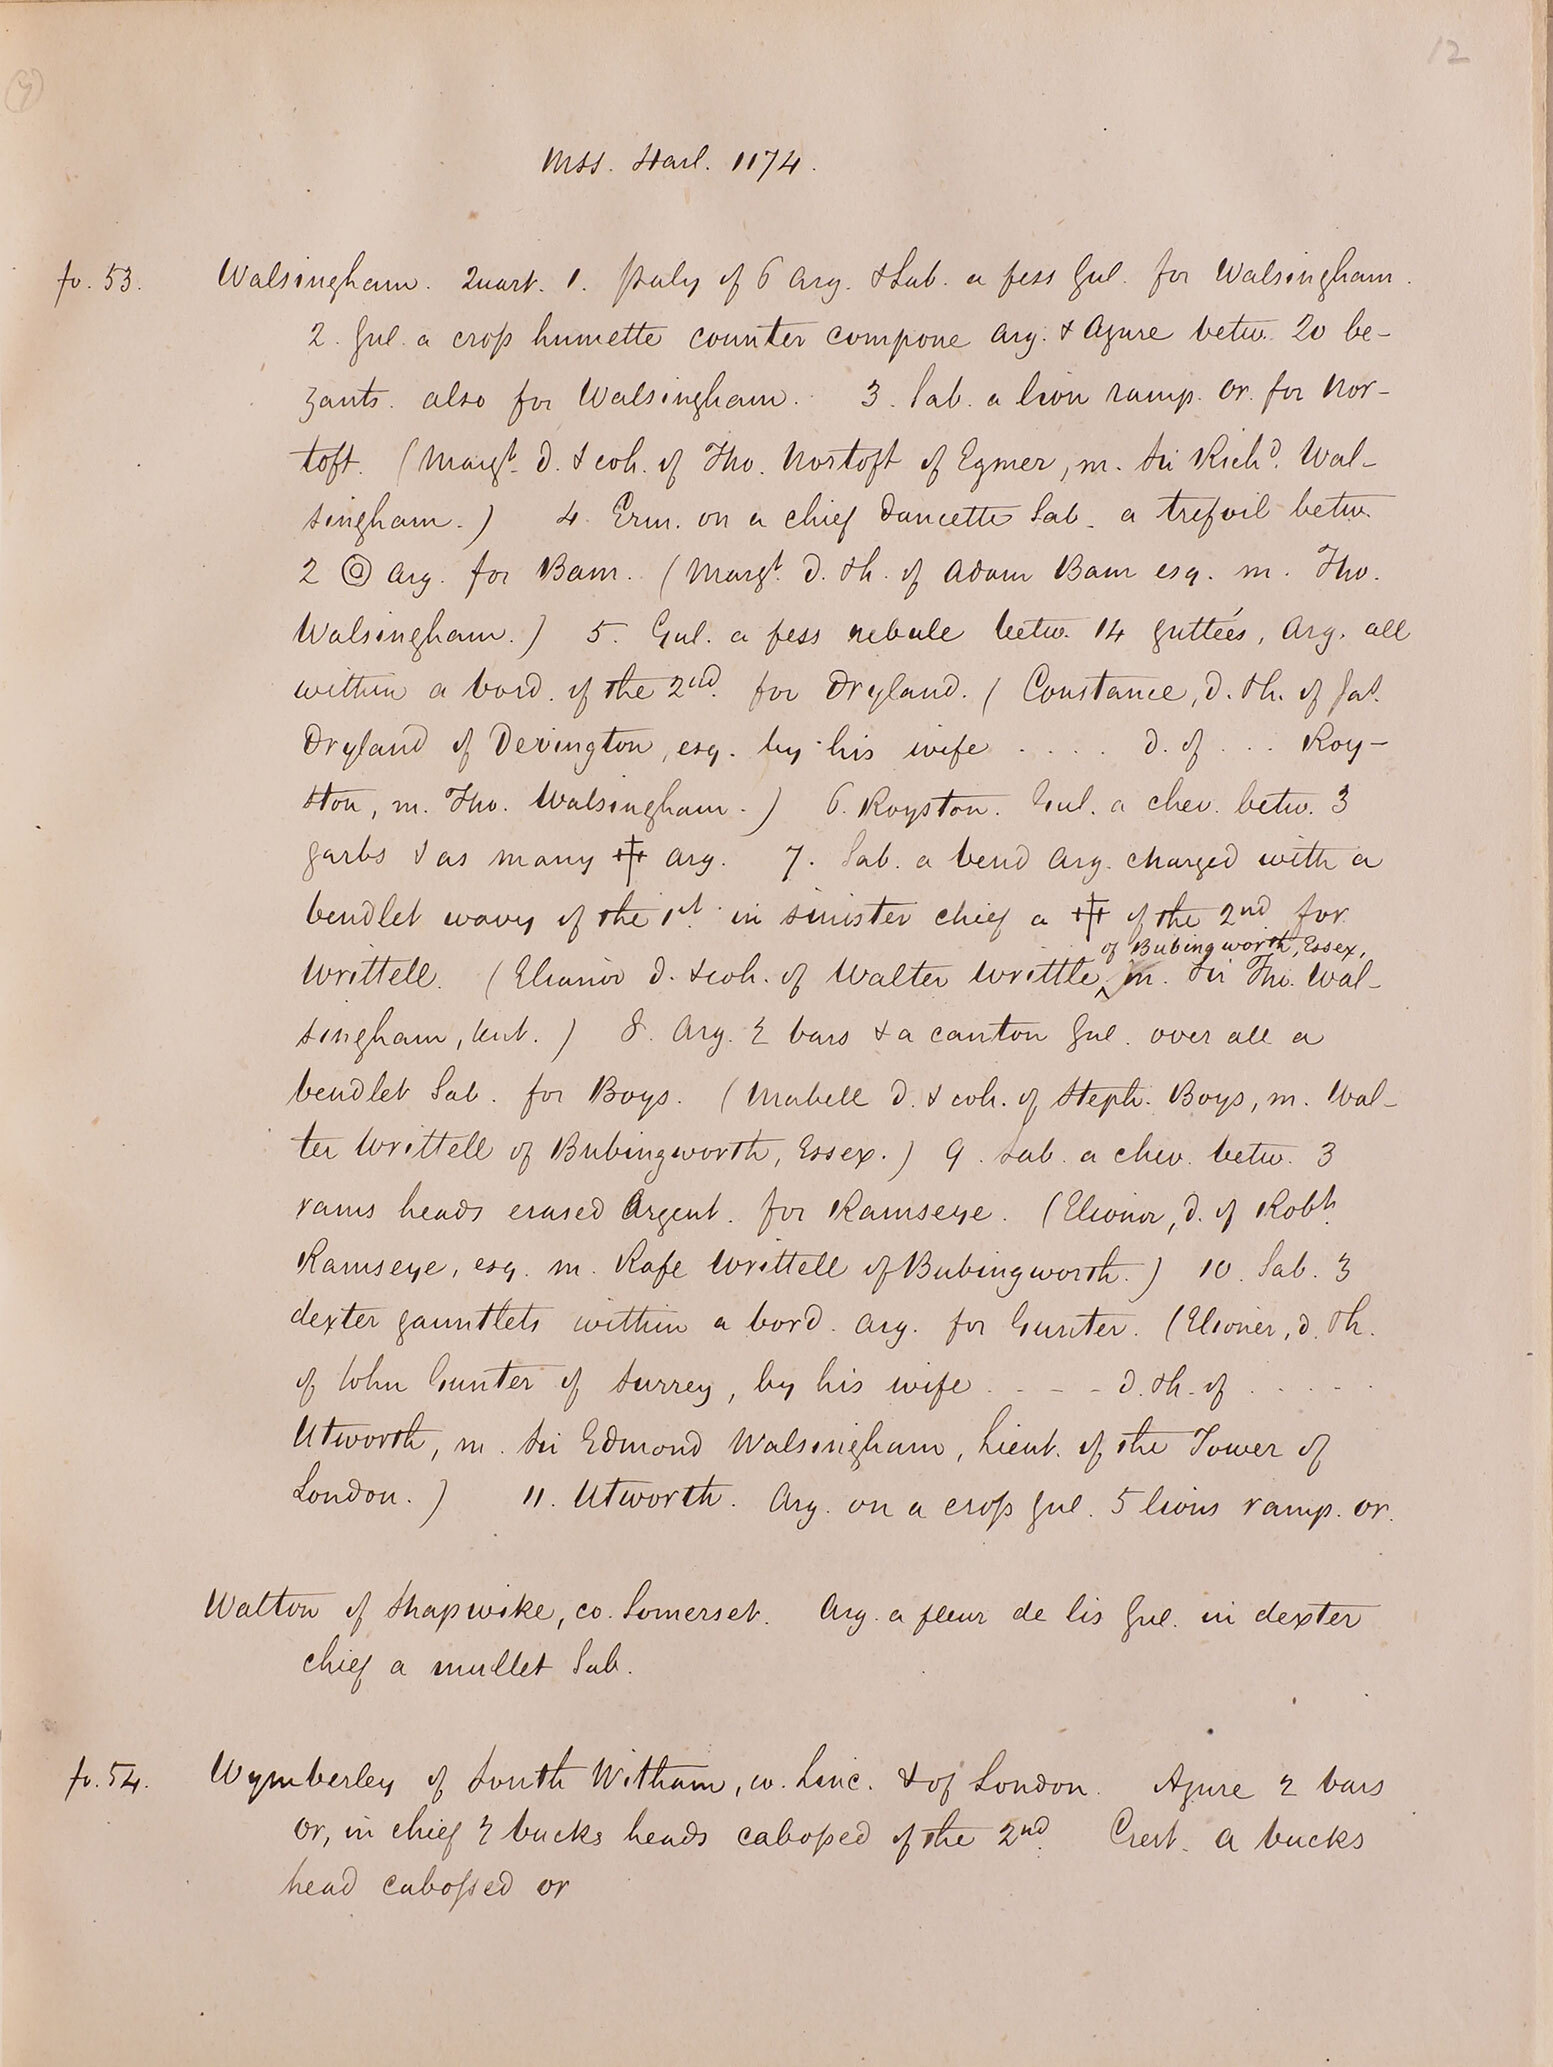 12
Mss. Harl. 1174.
fo. 53. Walsingham. Quart. 1. Paly of 6 Arg. & Sab. a fess Gul. for Walsingham.
2. Gul. a cross humette counter compone Arg. & Azure betw. 20 be-
zants. also for Walsingham. 3. Sab. a lion ramp. Or. for Nor-
toft. (Margt. d. & coh. of Tho. Nortoft of Egmer, m. Sir Richd. Wal-
singham.) 4. Erm. on a chief dancette Sab. a trefoil betw.
2 ◎ Arg. for Bam. (Margt. d. & h. of Adam Bam esq. m. Tho.
Walsingham.) 5. Gul. a fess nebule betw. 14 guttées, Arg. all
within a bord. of the 2nd. for Dryland. (Constance, d. & h. of Jas.
Dryland of Devington, esq. by his wife . . . . d. of . . . Roy-
ston, m. Tho. Walsingham.) 6. Royston. Gul. a chev. betw. 3
garbs & as many ☩ Arg. 7. Sab. a bend Arg. charged with a
bendlet wavy of the 1st. in sinister chief a ☩ of the 2nd. for
of Bubingworth, Essex,
Writtell. (Elianor d. & coh. of Walter Writtle, m. Sir Tho. Wal-
singham, knt.) 8. Arg. 2 bars & a canton Gul. over all a
bendlet Sab. for Boys. (Mabell d. & coh. of Steph. Boys, m. Wal-
ter Writtell of Bubingworth, Essex.) 9. Sab. a chev. betw. 3
rams heads erased Argent. for Ramseye. (Elionor, d. of Robt.
Ramseye, esq. m. Rafe Writtell of Bubingworth.) 10. Sab. 3
dexter gauntlets within a bord. Arg. for Gunter. (Elioner, d. & h.
of John Gunter of Surrey, by his wife . - - - d. & h. of . . . . .
Utworth, m. Sir Edmond Walsingham, Lieut. of the Tower of
London.) 11. Utworth. Arg. on a cross Gul. 5 lions ramp. or.
Walton of Shapwike, co. Somerset. Arg. a fleur de lis Gul. in dexter
chief a mullet Sab.
fo. 54. Wymberley of South Witham, co. Linc. & of London. Azure 2 bars
Or, in chief 2 bucks heads cabossed of the 2nd. Crest. A bucks
head cabossed or